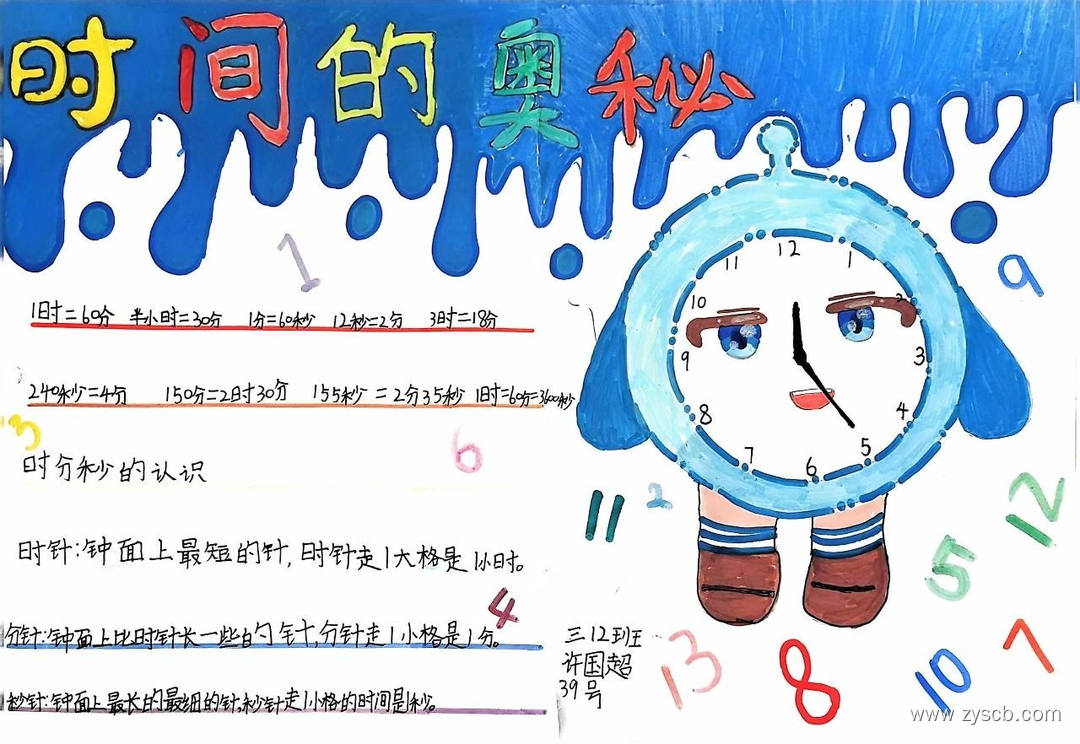 时间的奥秘
1
9
1时=60分 半小时=30分 1分=60秒 12秒=2分 3时=18分
240秒=4分 150分=2时30分 155秒=2分35秒 1时=60分=3600秒
3
6
时分秒的认识
时针:钟面上最短的针,时针走1大格是1小时。
4
分针:钟面上比时针长一些的针,分针走1小格是1分。
秒针:钟面上最长的最细的针,秒针走1小格的时间是秒。
12
1
2
3
4
5
6
7
8
9
10
11
11
2
12
5
三12班
许国超
39号
13
8
10
7
www.zyscb.com